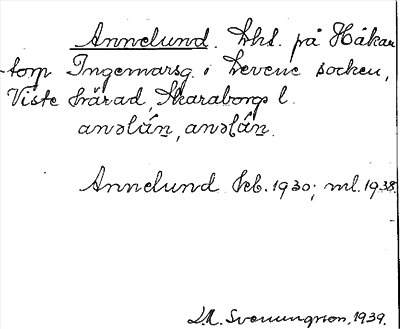 Annelund. Lht. på Håkan
-torp Ingemarsg. i Levene socken,
Viste härad, Skaraborgs l.
anəlún, anəlún.
Annelund Jeb. 1930; ml. 1938.
L.M. Svenungsson, 1939.